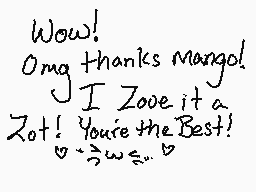 Wow!
Omg thanks Mango!
I Zove it a
Zot! You're the Best!